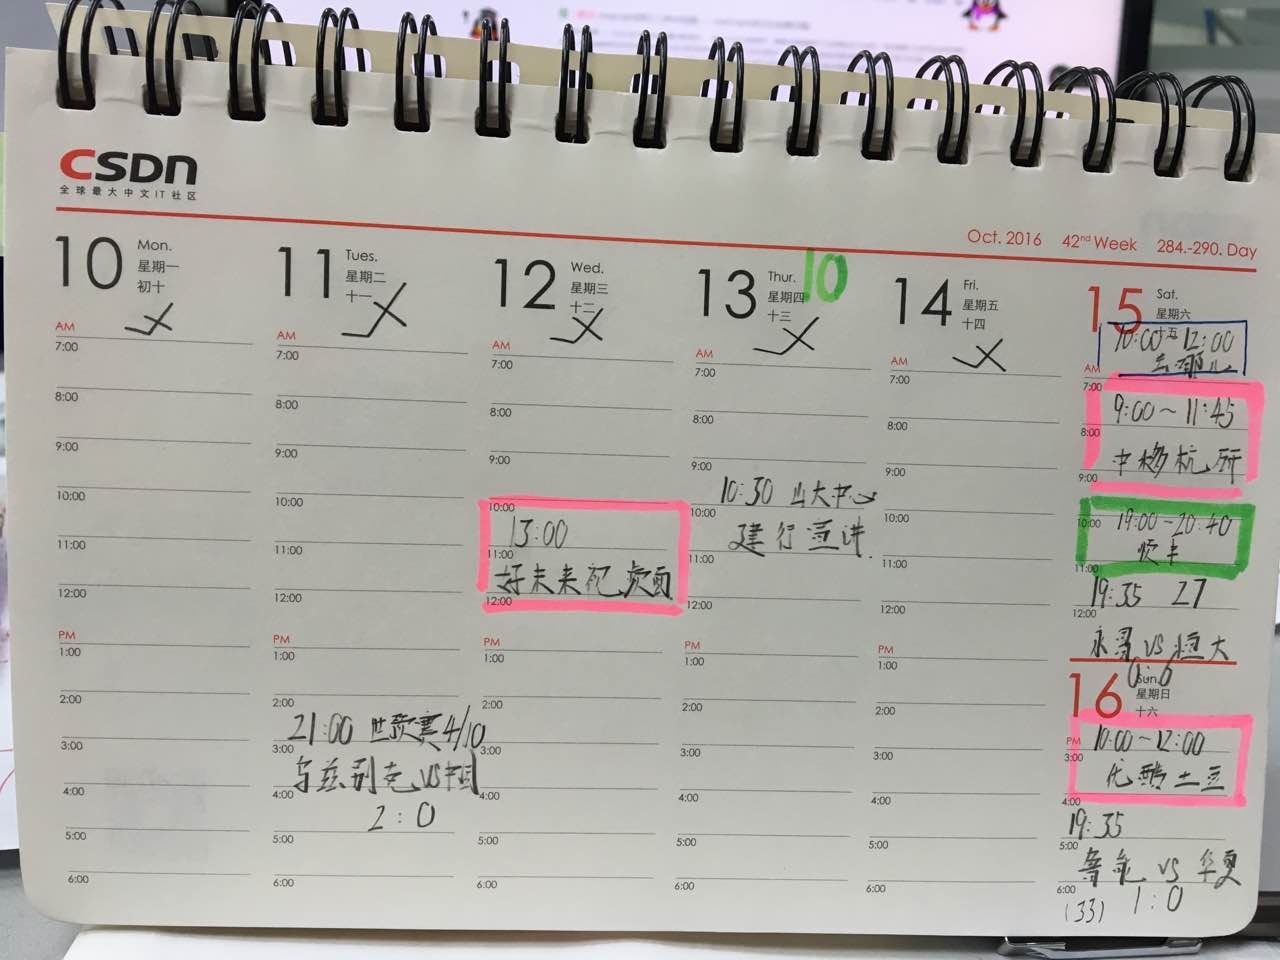 CSDN
全球最大中文IT社区
Oct. 2016 42nd Week 284.-290. Day
10 Mon. 星期一 初十
AM
7:00
8:00
9:00
10:00
11:00
12:00
PM
1:00
2:00
3:00
4:00
5:00
6:00
11 Tues. 星期二 十一
AM
7:00
8:00
9:00
10:00
11:00
12:00
PM
1:00
2:00
21:00 世预赛4/10
3:00
乌兹别克vs中国
4:00
2:0
5:00
6:00
12 Wed. 星期三 十二
AM
7:00
8:00
9:00
10:00
13:00
11:00
好未来 面
12:00
PM
1:00
2:00
3:00
4:00
5:00
6:00
13 Thur. 星期四 十三
10
AM
7:00
8:00
9:00
10:30 山大中心
10:00
建行宣讲.
11:00
12:00
PM
1:00
2:00
3:00
4:00
5:00
6:00
14 Fri. 星期五 十四
AM
7:00
8:00
9:00
10:00
11:00
12:00
PM
1:00
2:00
3:00
4:00
5:00
6:00
15 Sat. 星期六 十五
10:00-12:00
去哪儿
AM
7:00
9:00~11:45
8:00
中移杭研
9:00
10:00
19:00-20:40
顺丰
11:00
19:35 27
12:00
永昌vs恒大
0:6
16 Sun. 星期日 十六
PM
10:00~12:00
3:00
优酷土豆
4:00
19:35
5:00
鲁能 vs 华夏
6:00
(33) 1:0